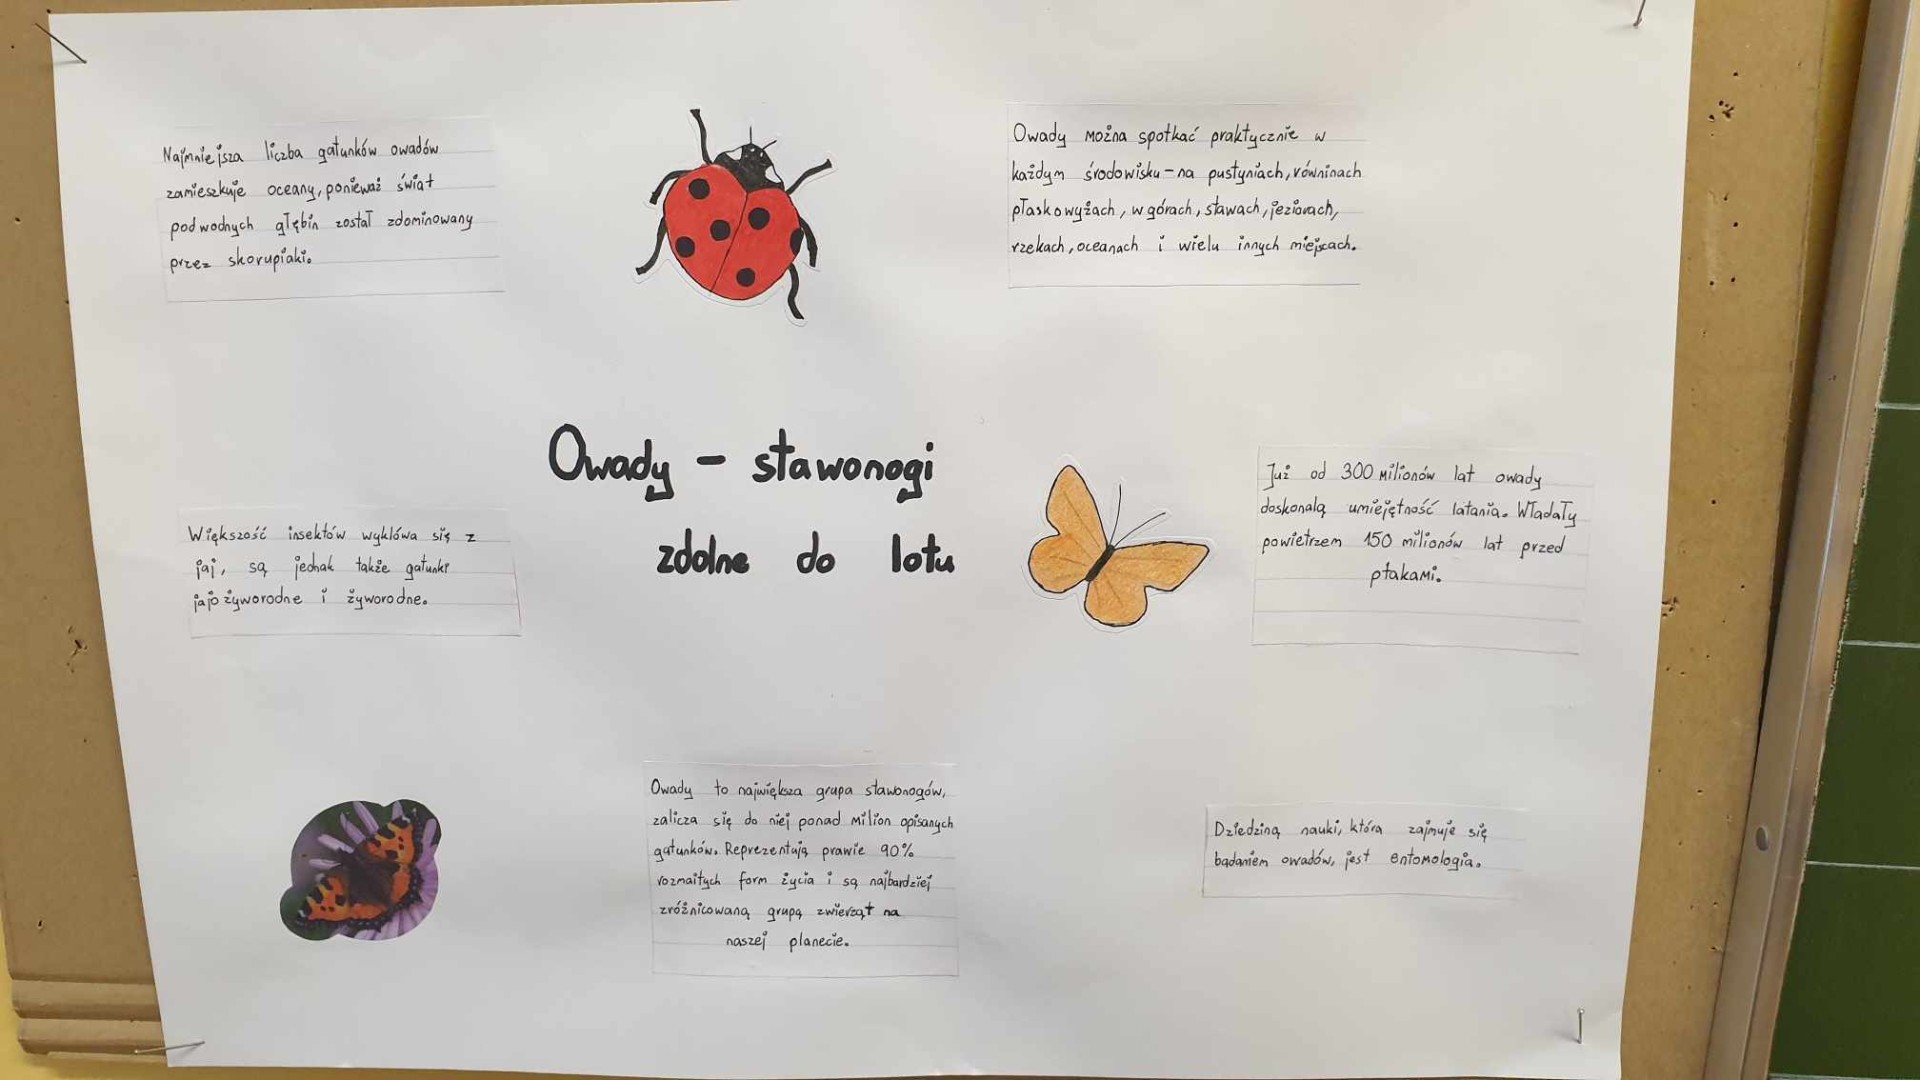 Najmniejsza liczba gatunków owadów
zamieszkuje oceany, ponieważ świat
podwodnych głębin został zdominowany
przez skorupiaki.
Owady można spotkać praktycznie w
każdym środowisku - na pustyniach, równinach
płaskowyżach, w górach, stawach, jeziorach,
rzekach, oceanach i wielu innych miejscach.
Owady - stawonogi
zdolne do lotu
Już od 300 milionów lat owady
doskonalą umiejętność latania. Władały
powietrzem 150 milionów lat przed
ptakami.
Większość insektów wyklówa się z
jaj, są jednak także gatunki
jajożyworodne i żyworodne.
Owady to największa grupa stawonogów,
zalicza się do niej ponad milion opisanych
gatunków. Reprezentują prawie 90%
rozmaitych form życia i są najbardziej
zróżnicowaną grupą zwierząt na
naszej planecie.
Dziedziną nauki, która zajmuje się
badaniem owadów, jest entomologia.